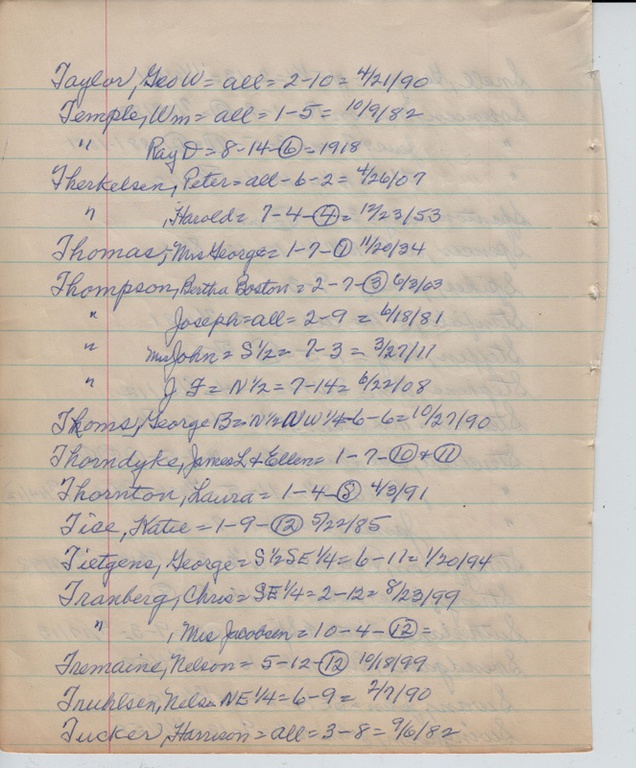 Taylor, Geo W = all = 2-10 = 4/21/90
Temple, Wm = all = 1-5 = 10/9/82
" Ray D = 8-14-⑥ = 1918
Therkelsen, Peter = all - 6-2 = 4/26/07
" , Harold = 7-4-④ = 12/23/53
Thomas, Mrs George = 1-7-① 11/20/34
Thompson, Bertha Boston = 2-7-③ 6/3/63
" Joseph = all = 2-9 = 6/18/81
" Mrs John = S 1/2 = 7-3 = 3/27/11
" J F = N 1/2 = 7-14 = 6/22/08
Thoms, George B = N 1/2 NW 1/4 - 6-6 = 10/27/90
Thorndyke, James L & Ellen = 1-7-⑩ + ⑪
Thornton, Laura = 1-4-⑧ 4/3/91
Tice, Katie = 1-9-⑫ 5/22/85
Tietgens, George = S 1/2 SE 1/4 = 6-11 = 1/20/94
Tranberg, Chris = SE 1/4 = 2-12 = 8/23/99
" , Mrs Jacobsen = 10-4-⑫ =
Tremaine, Nelson = 5-12-⑫ 10/18/99
Truhlsen, Nels = NE 1/4 = 6-9 = 2/7/90
Tucker, Harrison = all = 3-8 = 9/6/82